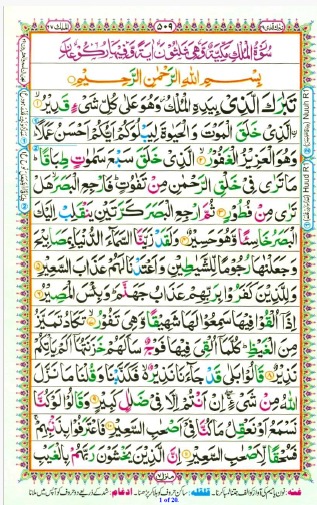 ٥٠٩
سُوْرَةُ الْمُلْكِ مَكِّيَّةٌ وَّهِىَ ثَلٰثُوْنَ اٰيَةً وَّفِيْهَا رُكُوْعَانِ
بِسْمِ اللّٰهِ الرَّحْمٰنِ الرَّحِيْمِ
تَبٰرَكَ الَّذِىْ بِيَدِهِ الْمُلْكُ وَهُوَ عَلٰى كُلِّ شَىْءٍ قَدِيْرُ ۙ﴿۱﴾
الَّذِىْ خَلَقَ الْمَوْتَ وَ الْحَيٰوةَ لِيَبْلُوَكُمْ اَيُّكُمْ اَحْسَنُ عَمَلًا ؕ
وَهُوَ الْعَزِيْزُ الْغَفُوْرُ ۙ﴿۲﴾ الَّذِىْ خَلَقَ سَبْعَ سَمٰوٰتٍ طِبَاقًا ؕ
مَا تَرٰى فِىْ خَلْقِ الرَّحْمٰنِ مِنْ تَفٰوُتٍ ؕ فَارْجِعِ الْبَصَرَ ۙ هَلْ
تَرٰى مِنْ فُطُوْرٍ ﴿۳﴾ ثُمَّ ارْجِعِ الْبَصَرَ كَرَّتَيْنِ يَنْقَلِبْ اِلَيْكَ
الْبَصَرُ خَاسِئًا وَّهُوَ حَسِيْرٌ ﴿۴﴾ وَلَقَدْ زَيَّنَّا السَّمَآءَ الدُّنْيَا بِمَصَابِيْحَ
وَ جَعَلْنٰهَا رُجُوْمًا لِّلشَّيٰطِيْنِ وَ اَعْتَدْنَا لَهُمْ عَذَابَ السَّعِيْرِ ﴿۵﴾
وَ لِلَّذِيْنَ كَفَرُوْا بِرَبِّهِمْ عَذَابُ جَهَنَّمَ ؕ وَبِئْسَ الْمَصِيْرُ ﴿۶﴾
اِذَاۤ اُلْقُوْا فِيْهَا سَمِعُوْا لَهَا شَهِيْقًا وَّ هِىَ تَفُوْرُ ۙ﴿۷﴾ تَكَادُ تَمَيَّزُ
مِنَ الْغَيْظِ ؕ كُلَّمَاۤ اُلْقِىَ فِيْهَا فَوْجٌ سَاَلَهُمْ خَزَنَتُهَاۤ اَلَمْ يَاْتِكُمْ
نَذِيْرٌ ﴿۸﴾ قَالُوْا بَلٰى قَدْ جَآءَنَا نَذِيْرٌ ۙ فَكَذَّبْنَا وَ قُلْنَا مَا نَزَّلَ
اللّٰهُ مِنْ شَىْءٍ ۖۚ اِنْ اَنْتُمْ اِلَّا فِىْ ضَلٰلٍ كَبِيْرٍ ﴿۹﴾ وَ قَالُوْا لَوْ كُنَّا
نَسْمَعُ اَوْ نَعْقِلُ مَا كُنَّا فِىْۤ اَصْحٰبِ السَّعِيْرِ ﴿۱۰﴾ فَاعْتَرَفُوْا بِذَنْۢبِهِمْ ۚ
فَسُحْقًا لِّاَصْحٰبِ السَّعِيْرِ ﴿۱۱﴾ اِنَّ الَّذِيْنَ يَخْشَوْنَ رَبَّهُمْ بِالْغَيْبِ
1 of 20.